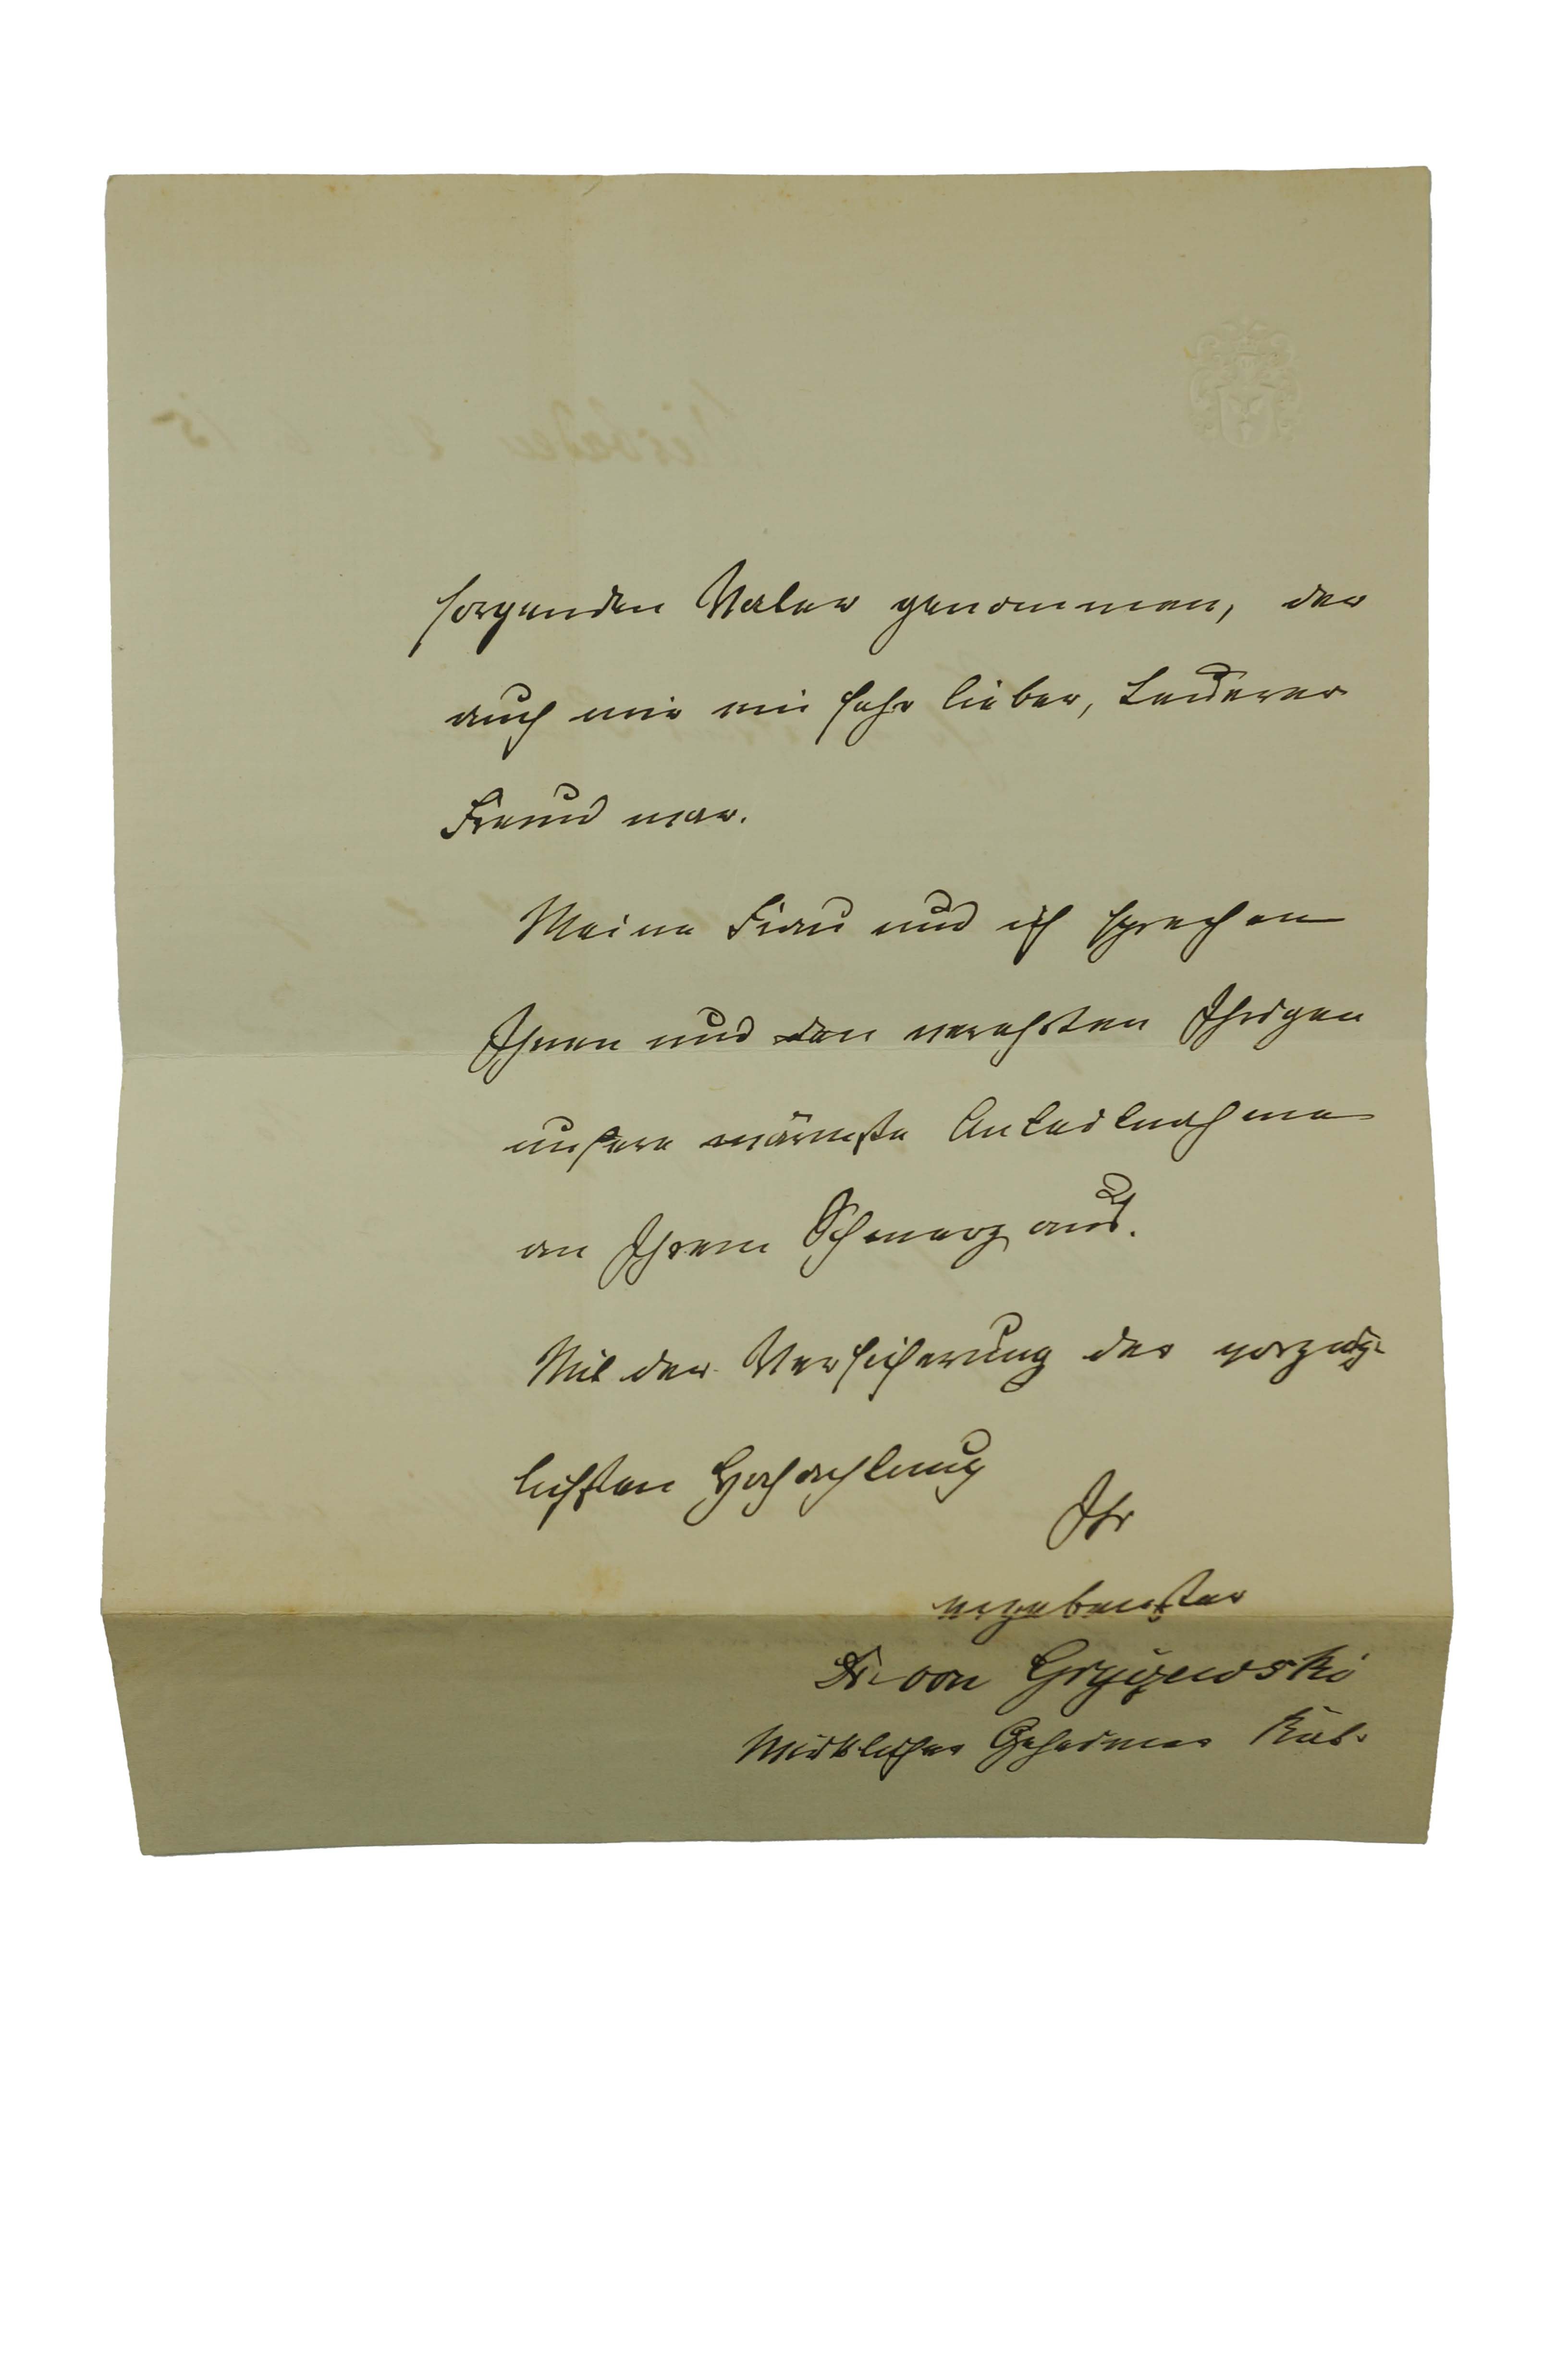 sorgenden Vater genommen, der
auch mir ein sehr lieber, teuerer
Freund war.
Meine Frau und ich sprechen
Ihnen und den verehrten Ihrigen
unsere wärmste Anteilnahme
an Ihrem Schmerz aus.
Mit der Versicherung der vorzüg-
lichsten Hochachtung
Ihr
ergebenster
Dr. von Gryczewski
Wirklicher Geheimer Rat.